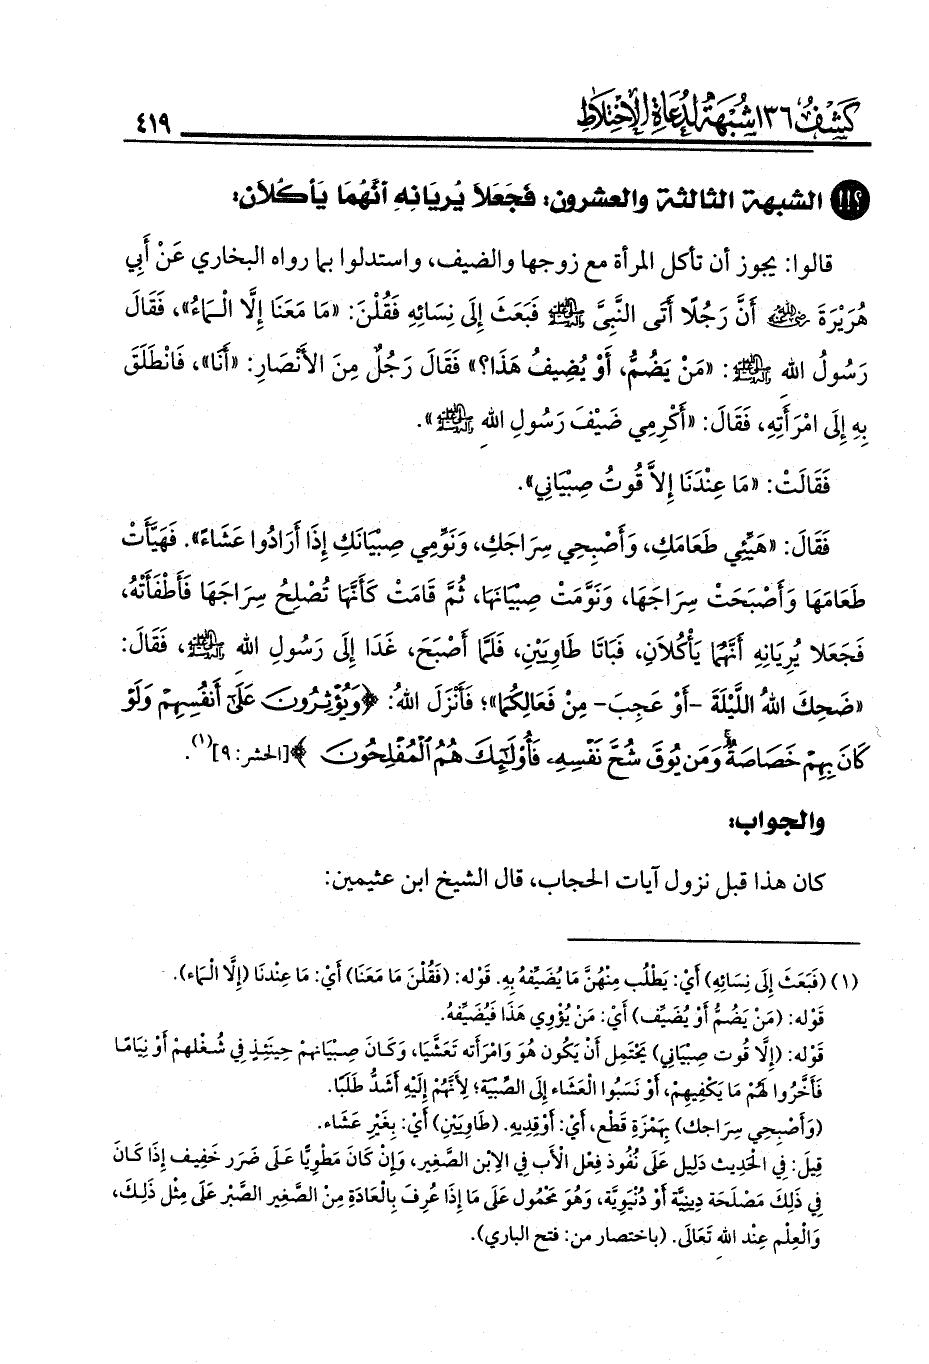 كَشْفُ ١٣٦ شُبْهَةً لِدُعَاةِ الِاخْتِلَاطِ
٤١٩
؟!! الشبهة الثالثة والعشرون: فَجَعَلاَ يُرِيَانِهِ أَنَّهُمَا يَأكُلاَن:
قالوا: يجوز أن تأكل المرأة مع زوجها والضيف، واستدلوا بما رواه البخاري عَنْ أَبِي
هُرَيْرَةَ رضي الله عنه أَنَّ رَجُلًا أَتَى النَّبِيَّ ﷺ فَبَعَثَ إِلَى نِسَائِهِ فَقُلْنَ: «مَا مَعَنَا إِلَّا الْمَاءُ»، فَقَالَ
رَسُولُ اللهِ ﷺ: «مَنْ يَضُمُّ، أَوْ يُضِيفُ هَذَا؟» فَقَالَ رَجُلٌ مِنَ الأَنْصَارِ: «أَنَا»، فَانْطَلَقَ
بِهِ إِلَى امْرَأَتِهِ، فَقَالَ: «أَكْرِمِي ضَيْفَ رَسُولِ اللهِ ﷺ».
فَقَالَتْ: «مَا عِنْدَنَا إِلاَّ قُوتُ صِبْيَانِي».
فَقَالَ: «هَيِّئِي طَعَامَكِ، وَأَصْبِحِي سِرَاجَكِ، وَنَوِّمِي صِبْيَانَكِ إِذَا أَرَادُوا عَشَاءً». فَهَيَّأَتْ
طَعَامَهَا وَأَصْبَحَتْ سِرَاجَهَا، وَنَوَّمَتْ صِبْيَانَهَا، ثُمَّ قَامَتْ كَأَنَّهَا تُصْلِحُ سِرَاجَهَا فَأَطْفَأَتْهُ،
فَجَعَلا يُرِيَانِهِ أَنَّهُمَا يَأْكُلاَنِ، فَبَاتَا طَاوِيَيْنِ، فَلَمَّا أَصْبَحَ، غَدَا إِلَى رَسُولِ اللهِ ﷺ، فَقَالَ:
«ضَحِكَ اللهُ اللَّيْلَةَ -أَوْ عَجِبَ- مِنْ فَعَالِكُمَا»؛ فَأَنْزَلَ اللهُ: ﴿وَيُؤْثِرُونَ عَلَىٰ أَنفُسِهِمْ وَلَوْ
كَانَ بِهِمْ خَصَاصَةٌ ۚ وَمَن يُوقَ شُحَّ نَفْسِهِ فَأُوْلَٰٓئِكَ هُمُ ٱلْمُفْلِحُونَ﴾[الحشر: ٩](١).
والجواب:
كان هذا قبل نزول آيات الحجاب، قال الشيخ ابن عثيمين:
(١) (فَبَعَثَ إِلَى نِسَائِهِ) أَيْ: يَطْلُب مِنْهُنَّ مَا يُضَيِّفهُ بِهِ. قَوْله: (فَقُلْنَ مَا مَعَنَا) أَيْ: مَا عِنْدنَا (إِلَّا الْمَاء).
قَوْله: (مَنْ يَضُمُّ أَوْ يُضَيِّف) أَيْ: مَنْ يُؤْوِي هَذَا فَيُضَيِّفهُ.
قَوْله: (إِلَّا قُوت صِبْيَانِي) يَحْتَمِل أَنْ يَكُون هُوَ وَامْرَأَته تَعَشَّيَا، وَكَانَ صِبْيَانهمْ حِينَئِذٍ فِي شُغْلهمْ أَوْ نِيَامًا
فَأَخَّرُوا لَهُمْ مَا يَكْفِيهِمْ، أَوْ نَسَبُوا الْعَشَاء إِلَى الصِّبْيَة؛ لِأَنَّهُمْ إِلَيْهِ أَشَدُّ طَلَبًا.
(وَأَصْبِحِي سِرَاجك) بِهَمْزَةِ قَطْع، أَيْ: أَوْقِدِيهِ. (طَاوِيَيْنِ) أَيْ: بِغَيْرِ عَشَاء.
قِيلَ: فِي الْحَدِيث دَلِيل عَلَى نُفُوذ فِعْل الْأَب فِي الِابْن الصَّغِير، وَإِنْ كَانَ مَطْوِيًّا عَلَى ضَرَر خَفِيف إِذَا كَانَ
فِي ذَلِكَ مَصْلَحَة دِينِيَّة أَوْ دُنْيَوِيَّة، وَهُوَ مَحْمُول عَلَى مَا إِذَا عُرِفَ بِالْعَادَةِ مِنْ الصَّغِير الصَّبْر عَلَى مِثْل ذَلِكَ،
وَالْعِلْم عِنْد اللهِ تَعَالَى. (باختصار من: فتح الباري).